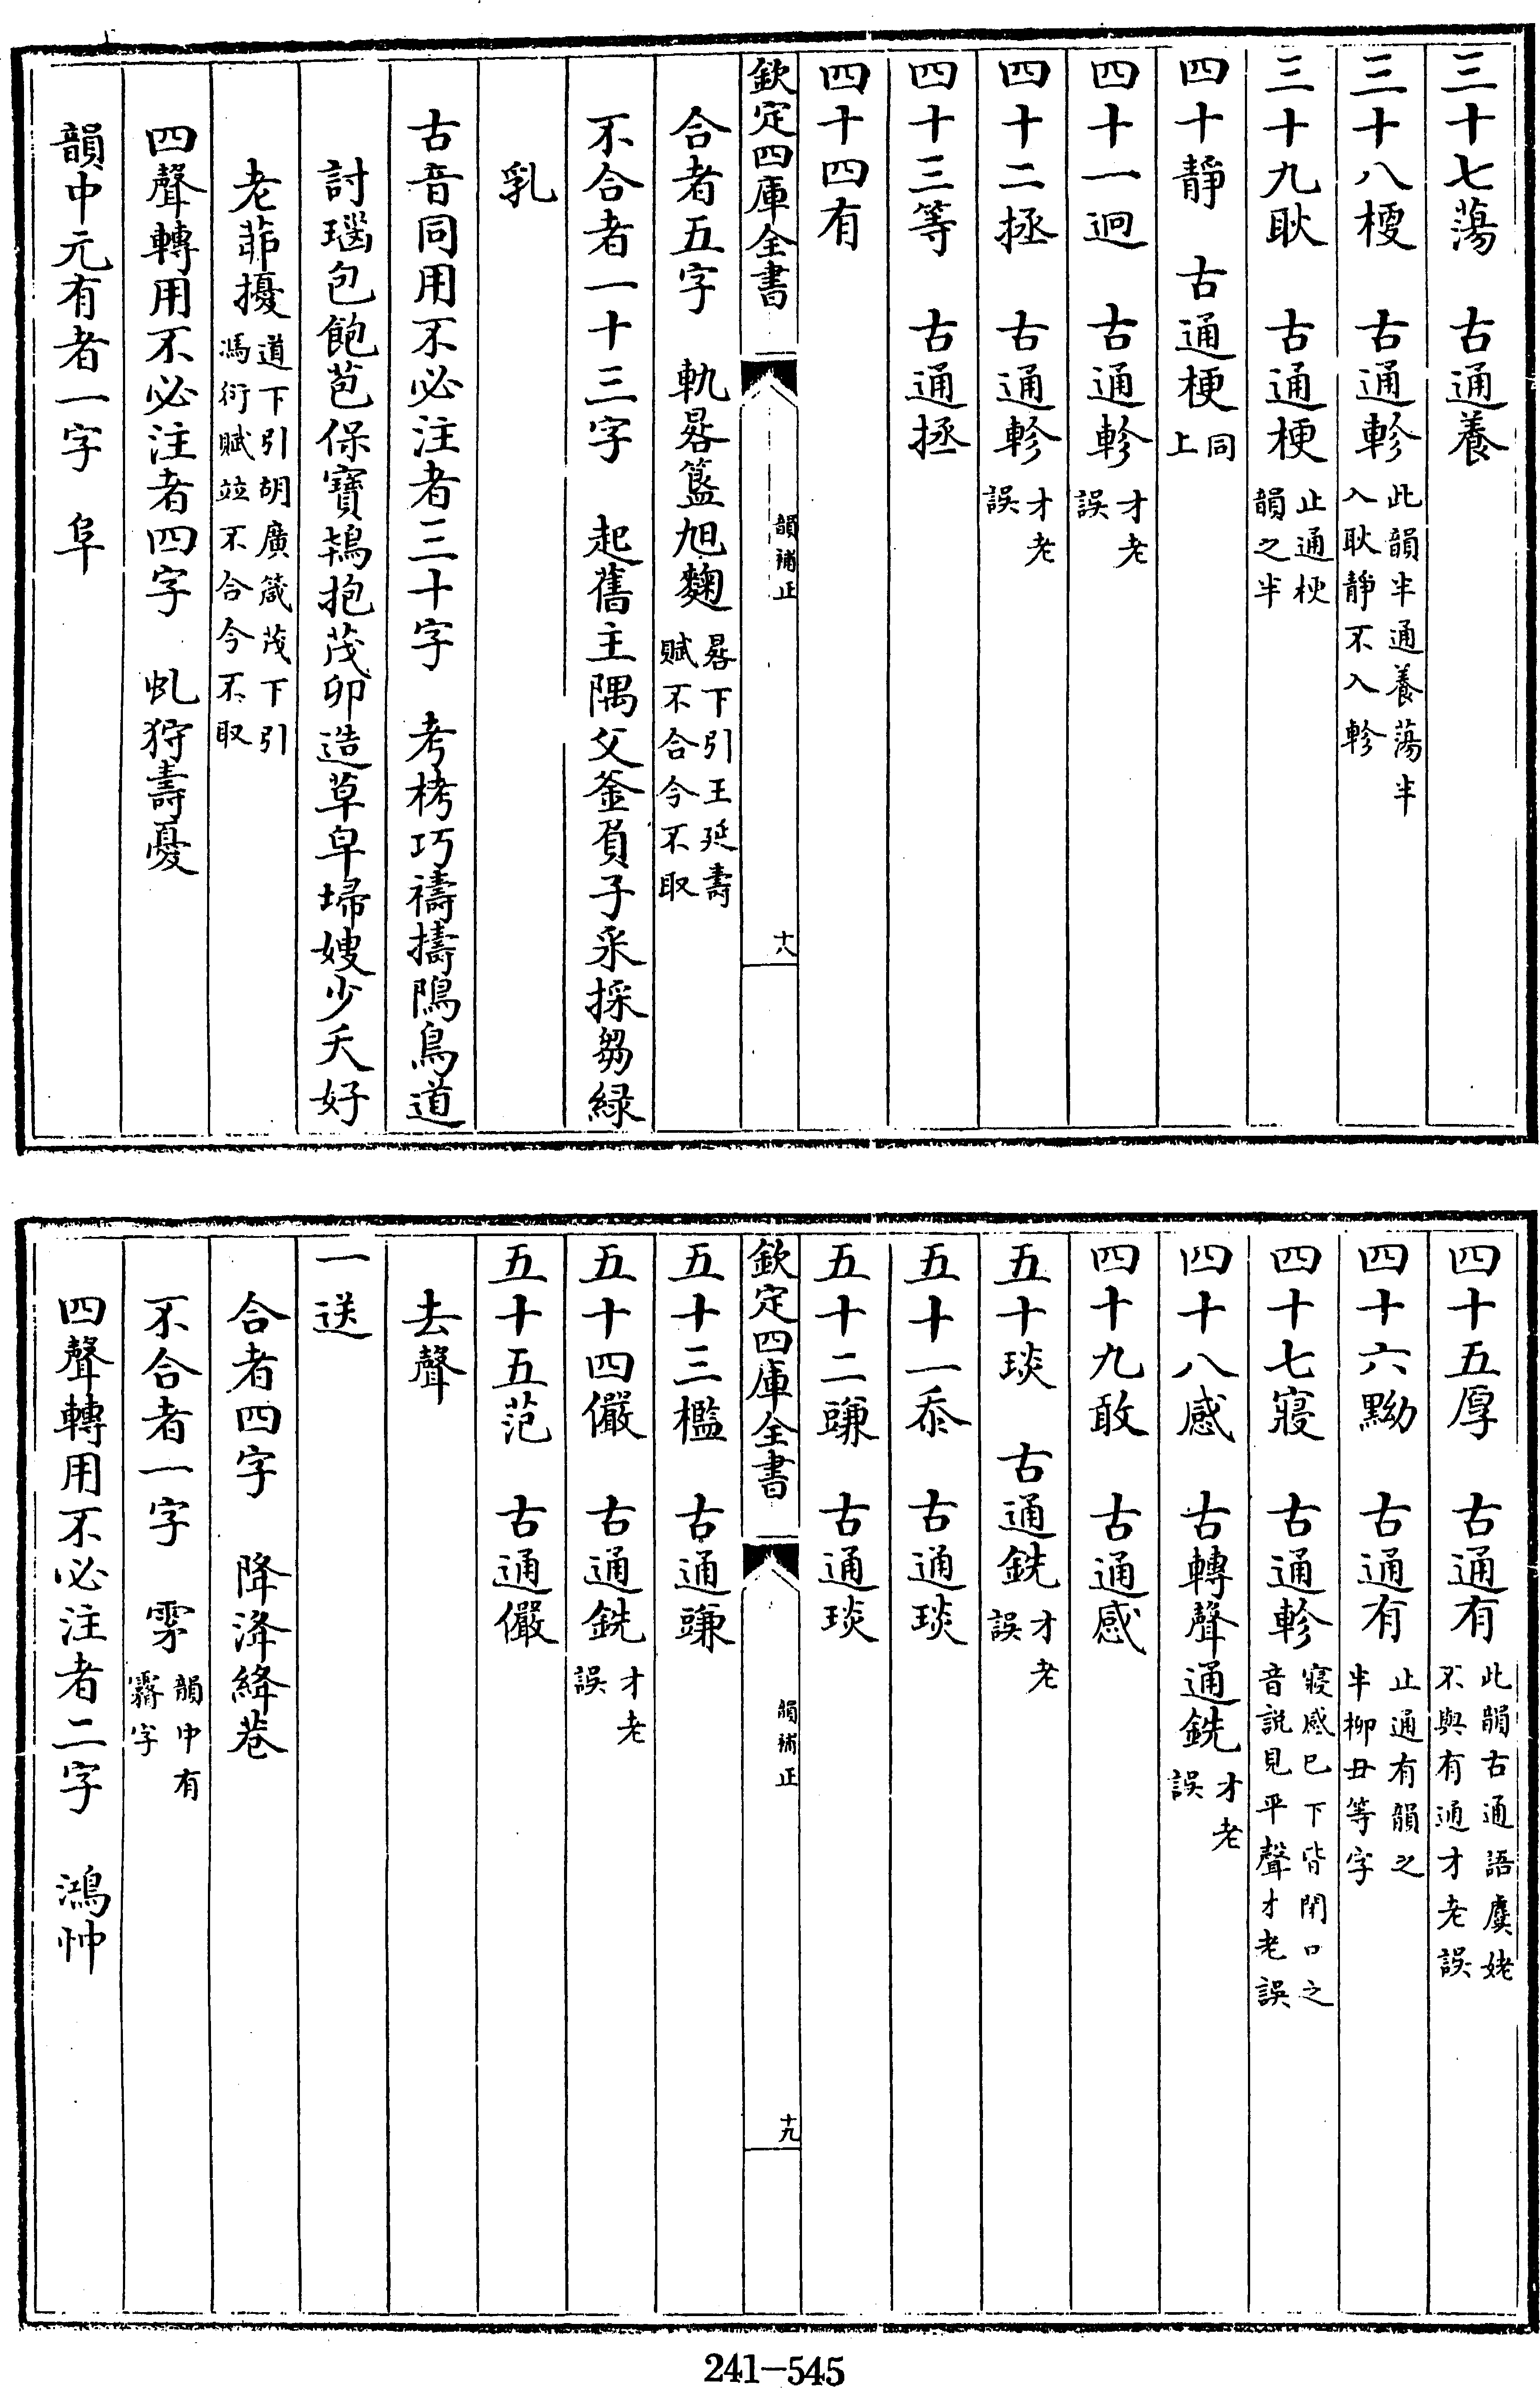 三十七蕩　古通養
三十八梗　古通軫此韻半通養蕩半入耿靜不入軫
三十九耿　古通梗止通梗韻之半
四十靜　古通梗同上
四十一迥　古通軫才老誤
四十二拯　古通軫才老誤
四十三等　古通拯
四十四有
欽定四庫全書　韻補正　十八
合者五字　軌晷簋旭麴晷下引王延壽賦不合今不取
不合者一十三字　起舊主隅父釜負子采採芻緑
乳
古音同用不必注者三十字　考栲巧禱擣鴇鳥道
討瑙包飽苞保寶鴇抱茂卯造草皁埽嫂少夭好
老茆擾道下引胡廣箴茂下引馮衍賦並不合今不取
四聲轉用不必注者四字　虯狩壽憂
韻中元有者一字　阜
四十五厚　古通有此韻古通語麌姥不與有通才老誤
四十六黝　古通有止通有韻之半柳丑等字
四十七寢　古通軫寢感已下皆閉口之音説見平聲才老誤
四十八感　古轉聲通銑才老誤
四十九敢　古通感
五十琰　古通銑才老誤
五十一忝　古通琰
五十二豏　古通琰
欽定四庫全書　韻補正　十九
五十三檻　古通豏
五十四儼　古通銑才老誤
五十五范　古通儼
去聲
一送
合者四字　降洚絳巷
不合者一字　雺韻中有霿字
四聲轉用不必注者二字　鴻忡
241-545